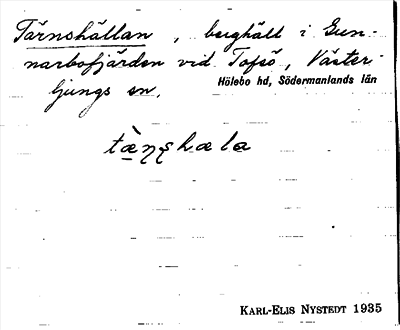 Tärnshällan, berghäll i Gun-
narbofjärden vid Tofsö, Väster-
ljungs sn,
Hölebo hd, Södermanlands län
tæ̀ŋʂhæla
KARL-ELIS NYSTEDT 1935